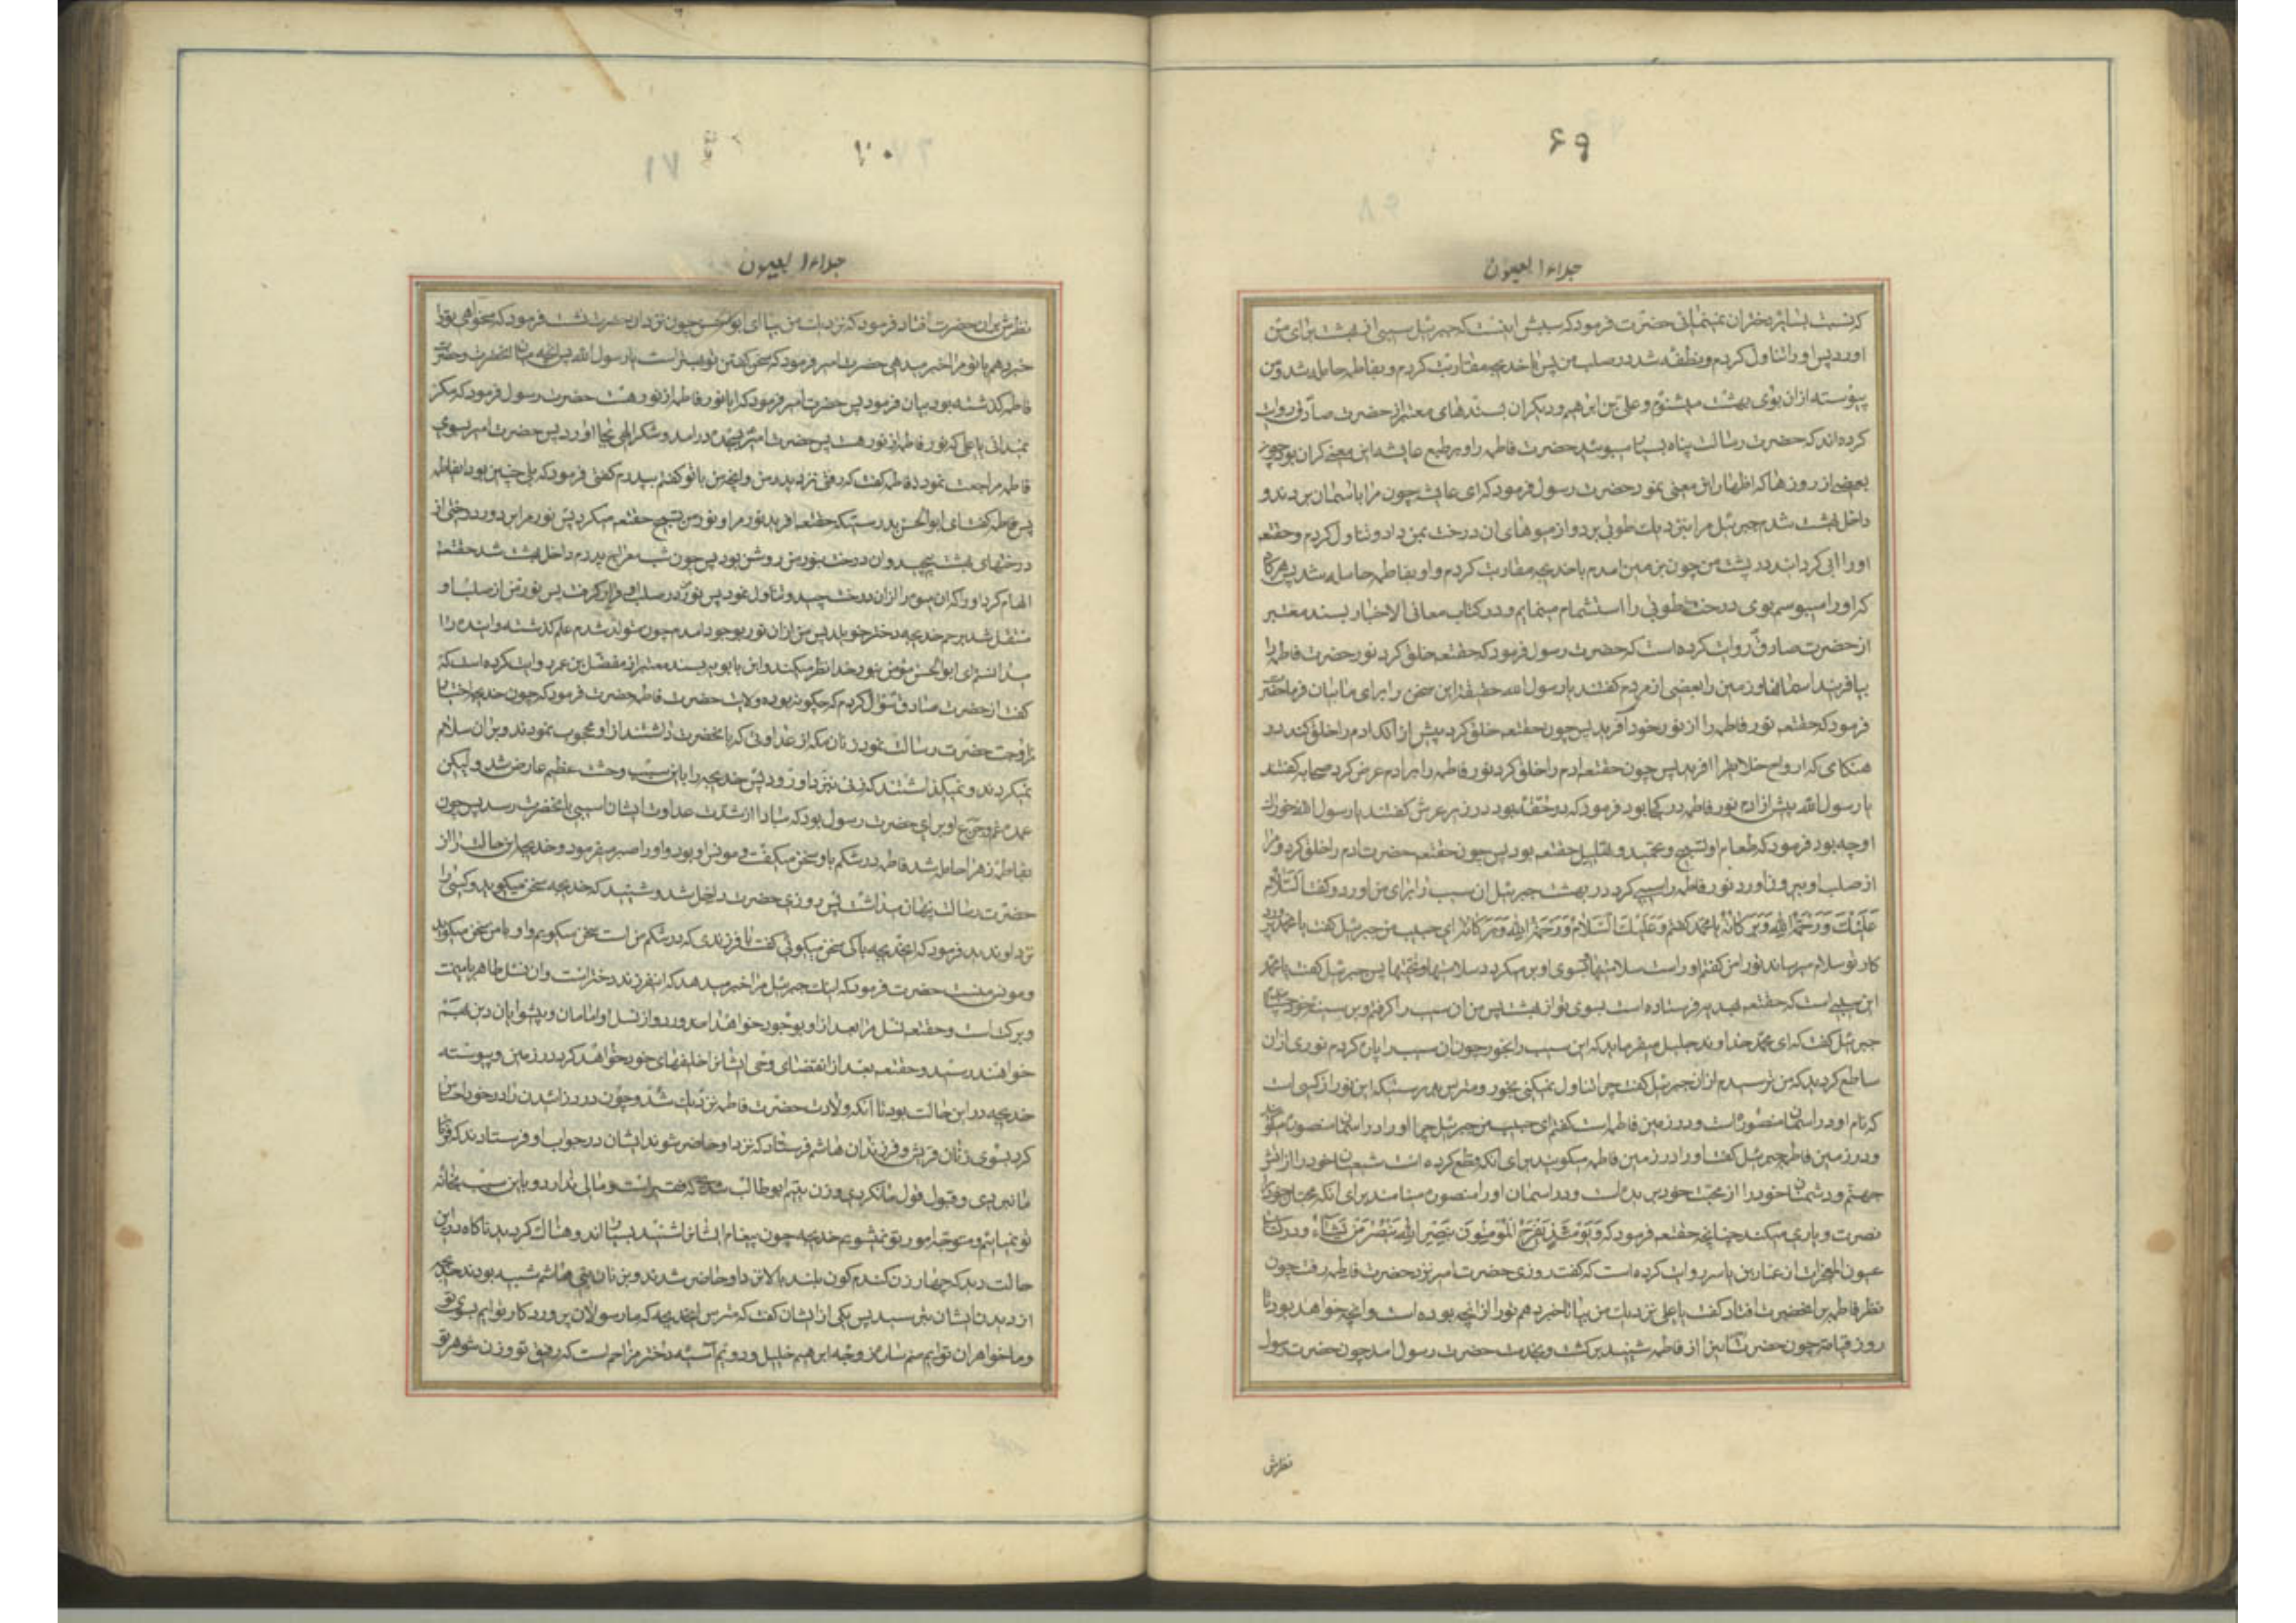 ۶۹
جلاء العیون
که نسبت بسایر دختران نمینمائی حضرت فرمود که سببش اینست که جبرئیل سیبی از بهشت برای من
اورد پس او را تناول کردم و نطفه شد در صلب من پس با خدیجه مقاربت کردم و بفاطمه حامله شد و من
پیوسته ازان بوی بهشت میشنوم و علی بن ابراهیم و دیگران بسندهای معتبر از حضرت صادق روایت
کرده‌اند که حضرت رسالت پناه بسیار میبوسید حضرت فاطمه را و بر طبع عایشه این معنی گران بود چون
بعضی از روزها که اظهار این معنی نمود حضرت رسول فرمود که ای عایشه چون مرا باسمان بردند و
داخل بهشت شدم جبرئیل مرا بنزدیک طوبی برد و از میوهای ان درخت بمن داد و تناول کردم و حقتعه
او را ابی گردانید در پشت من چون بزمین امدم با خدیجه مقاربت کردم و او بفاطمه حامله شد پس هرگاه
که او را میبوسم بوی درخت طوبی را استشمام مینمایم و در کتاب معانی الاخبار بسند معتبر
از حضرت صادق روایت کرده است که حضرت رسول فرمود که حقتعه خلق کرد نور حضرت فاطمه را
بیافریند اسمانها و زمین را بعضی از مردم گفتند یا رسول الله حقیقة این سخن را برای ما بیان فرما حضرت
فرمود که حقتعه نور فاطمه را از نور خود آفرید پس چون حقتعه خلق کرد پیش از آنکه ادم را خلق کند در
هنگامی که ارواح خلایق را افرید پس چون حقتعه ادم را خلق کرد نور فاطمه را بر ادم عرض کرد صحابه گفتند
یا رسول الله پیش از ادم نور فاطمه در کجا بود فرمود که در حقه بود در زیر عرش گفتند یا رسول الله خوراک
او چه بود فرمود که طعام او تسبیح و تحمید و تهلیل حقتعه بود پس چون حقتعه حضرت ادم را خلق کرد و مرا
از صلب او بیرون اورد نور فاطمه را سیبی کرد در بهشت جبرئیل ان سیب را برای من اورد و گفت اَلسَّلامُ
عَلَیْكَ وَرَحْمَةُ اللهِ وَبَرَكَاتُهُ یا محمد گفتم وَعَلَیْكَ السَّلامُ وَرَحْمَةُ اللهِ وَبَرَكَاتُهُ ای حبیب من جبرئیل گفت یا محمد پرورد
کار تو سلام میرساند تو را من گفتم او راست سلامتیها و بسوی او بر میگردد سلامتیها و تحیتها پس جبرئیل گفت یا محمد
این سیبی است که حقتعه بهدیه فرستاده است بسوی تو از بهشت پس من ان سیب را گرفتم و بر سینه خود چسبانیدم
جبرئیل گفت که ای محمد خداوند جلیل میفرماید که این سیب را بخور چون ان سیب را پاره کردم نوری ازان
ساطع گردید که من ترسیدم ازان جبرئیل گفت چرا تناول نمیکنی بخور و مترس بدرستیکه این نور از کسی است
که نام او در اسمان منصوره است و در زمین فاطمه است گفتم ای حبیب من جبرئیل چرا او را در اسمان منصوره میگویند
و در زمین فاطمه جبرئیل گفت او را در زمین فاطمه میگویند برای انکه قطع کرده است شیعیان خود را از اتش
جهنم و دشمنان خود را از محبت خود بریده است و در اسمان او را منصوره مینامند برای انکه محبان خود را
نصرت و یاری میکند چنانچه حقتعه فرمود که وَیَوْمَئِذٍ یَفْرَحُ الْمُؤْمِنُونَ بِنَصْرِ اللهِ یَنْصُرُ مَنْ یَشَاءُ و در کتاب
عیون المعجزات از عمار بن یاسر روایت کرده است که گفت روزی حضرت امیر نزد حضرت فاطمه رفت چون
نظر فاطمه بر انحضرت افتاد گفت یا علی نزدیک من بیا تا خبر دهم تو را از انچه بوده است و انچه خواهد بود تا
روز قیامة چون حضرت اینرا از فاطمه شنید برگشت و بخدمت حضرت رسول امد چون حضرت رسول
نظرش
۷۰
۷۱
جلاء العیون
نظرش بران حضرت افتاد فرمود که نزدیک من بیا ای ابوالحسن چون نزد ان حضرت نشست فرمود که میخواهی تو را
خبر دهم یا تو مرا خبر میدهی حضرت امیر فرمود که سخن گفتن تو بهتر است یا رسول الله پس انچه میان انحضرت و حضرت
فاطمه گذشته بود بیان فرمود پس حضرت امیر فرمود که ایا نور فاطمه از نور ماست حضرت رسول فرمود که مگر
نمیدانی یا علی که نور فاطمه از نور ماست پس حضرت امیر بسجده در امد و شکر الهی بجا اورد پس حضرت امیر بسوی
فاطمه مراجعت نمود فاطمه گفت که رفتی نزد پدر من و انچه من با تو گفتم بپدرم گفتی فرمود که بلی چنین بود ای فاطمه
پس فاطمه گفت ای ابوالحسن بدرستیکه حقتعه افرید نور مرا و نور من تسبیح حقتعه میکرد پس نور مرا سپرد در درختی از
درختهای بهشت و ان درخت بنور من روشن بود پس چون شب معراج پدرم داخل بهشت شد حقتعه
الهام کرد او را که ان میوه را ازان درخت چید و تناول نمود پس نور من در صلب او قرار گرفت پس نور من از صلب او
منتقل شد برحم خدیجه دختر خویلد پس من ازان نور بوجود امدم چون متولد شدم علم گذشته و اینده را
میدانستم ای ابوالحسن مؤمن بنور خدا نظر میکند و ابن بابویه بسند معتبر از مفضّل بن عمر روایت کرده است که
گفت از حضرت صادق سؤال کردم که چگونه بوده ولادت حضرت فاطمه حضرت فرمود که چون خدیجه اختیار
مزاوجت حضرت رسالت نمود زنان مکه از عداوتی که با انحضرت داشتند از او محجوب نمودند و بر ان سلام
نمیکردند و نمیگذاشتند که زنی بنزد او رود پس خدیجه را باین سبب وحشت عظیم عارض شد ولیکن
عمده غم و جزع او برای حضرت رسول بود که مبادا از شدت عداوت ایشان اسیبی بانحضرت رسد پس چون
بفاطمه زهرا حامله شد فاطمه در شکم با او سخن میگفت و مونس او بود و او را صبر میفرمود و خدیجه این حالت را از
حضرت رسالت پنهان میداشت پس روزی حضرت داخل شد و شنید که خدیجه سخن میگوید و کسی را
نزد او ندید فرمود که ای خدیجه با کی سخن میگوئی گفت با فرزندی که در شکم من است سخن میگویم و او با من سخن میگوید
و مونس منست حضرت فرمود که اینک جبرئیل مرا خبر میدهد که اینفرزند دختر است و ان نسل طاهر با میمنت
و برکت است و حقتعه نسل مرا بعد از او بوجود خواهد اورد و از نسل او امامان و پیشوایان دین بهم
خواهند رسید و حقتعه بعد از انقضای وحی ایشانرا خلیفهای خود خواهد کرد در زمین و پیوسته
خدیجه در این حالت بود تا آنکه ولادت حضرت فاطمه نزدیک شد و چون درد زائیدن را در خود احساس
کرد بسوی زنان قریش و فرزندان هاشم فرستاد که نزد او حاضر شوند ایشان در جواب او فرستادند که فرمان
ما نبردی و قبول قول ما نکردی و زن یتیم ابوطالب شدی که فقیر است و مالی ندارد و باین سبب بخانه
تو نمیائیم و متوجه امور تو نمیشویم خدیجه چون پیغام ایشانرا شنید بسیار اندوهناک گردید ناگاه در این
حالت دید که چهار زن گندم گون بلند بالا نزد او حاضر شدند و بزنان بنی هاشم شبیه بودند خدیجه
از دیدن ایشان بترسید پس یکی از ایشان گفت که مترس ای خدیجه که ما رسولان پروردگار توایم بسوی تو
و ما خواهران توایم منم ساره زوجه ابراهیم خلیل و دویم آسیه دختر مزاحم است که رفیق تو و زن شوهر تو